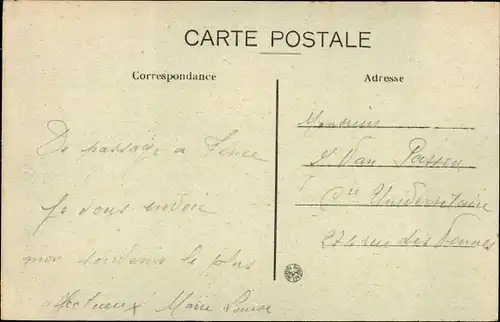 CARTE POSTALE
Correspondance
Adresse
De passage a
Je vous envoie
mon souvenir le plus
affectueux Marie Louise
Monsieur
Van Passen
Universitaire
rue des Vennes